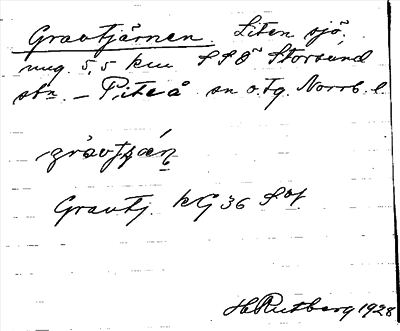 Gravtjärnen. Liten sjö,
ung. 5,5 km SSÖ Storsund
stn. – Piteå sn o. tg. Norrb. l.
Gravtj. KG 36 SO
H Rutberg 1928